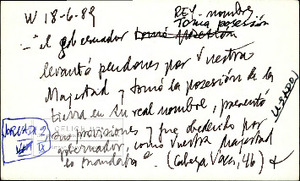 W 18-6-89
REY - nombre
Toma posesión
"el gobernador tomó posesión
levantó pendones por Vuestra
Majestad y tomó la posesión de la
tierra en su real nombre, presentó
sus provisiones y fue obedecido por
gobernador, como Vuestra Majestad
lo mandaba" (Cabeza Vaca, 46)
USADO